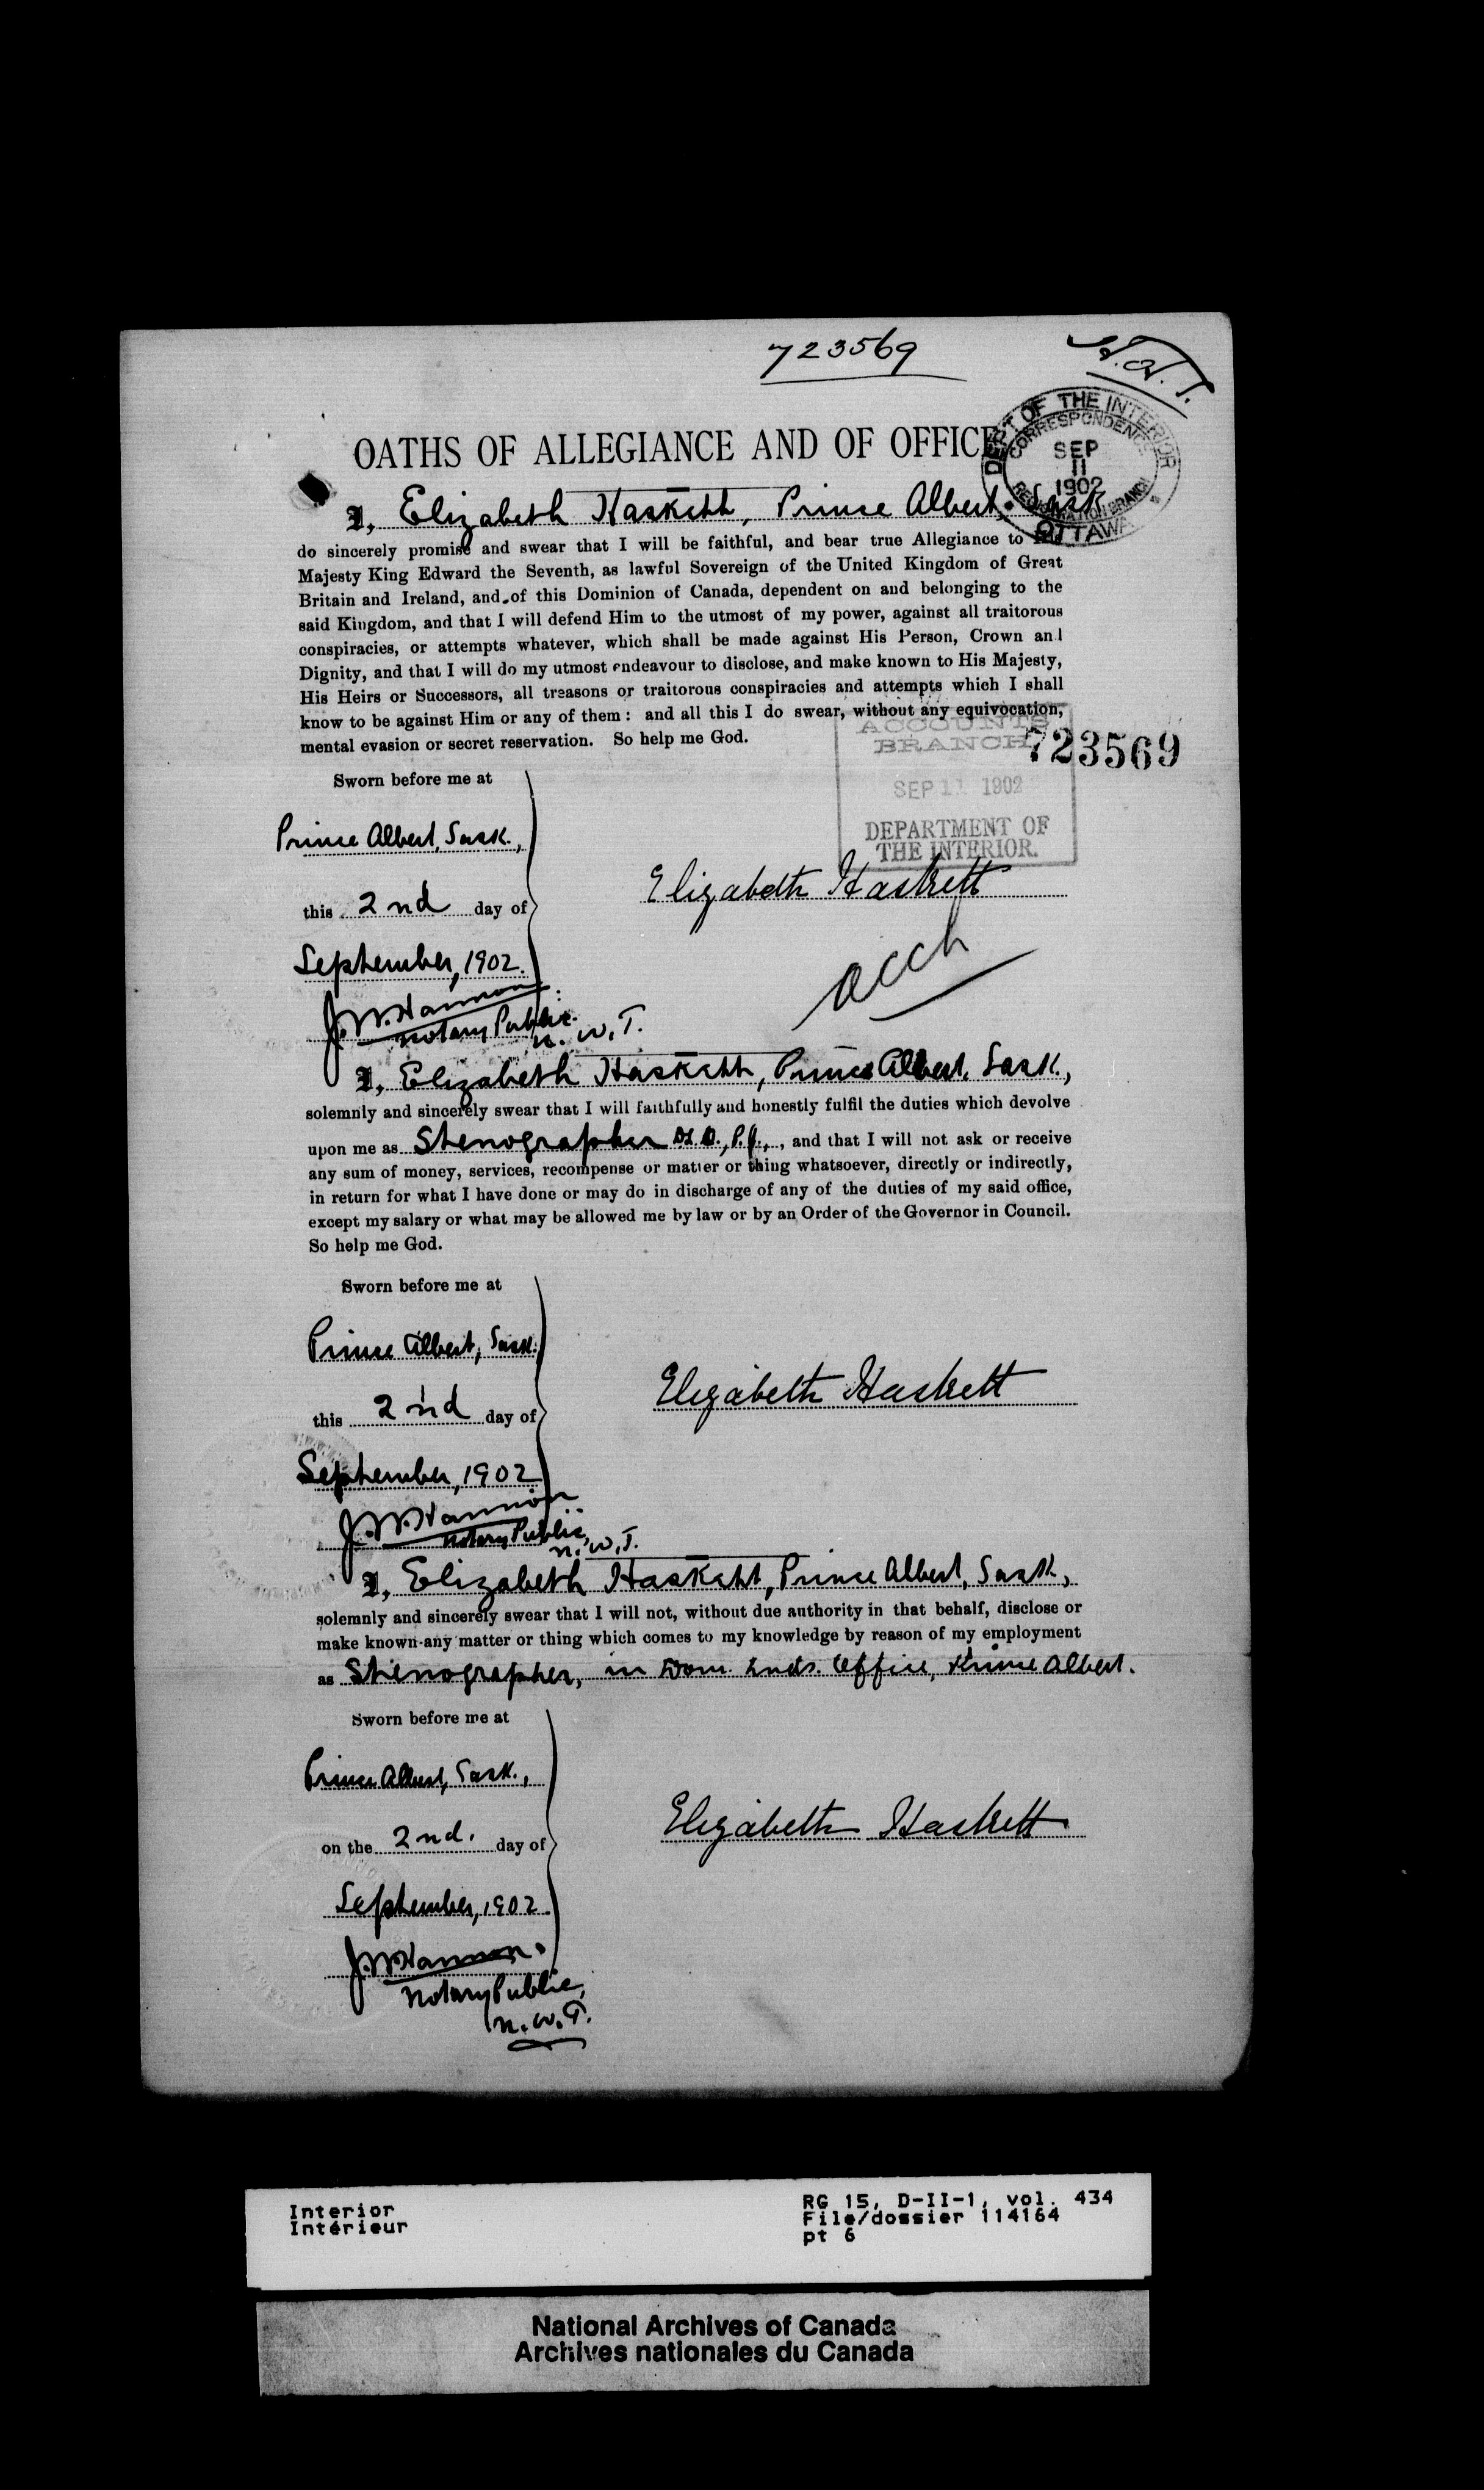 723569
OATHS OF ALLEGIANCE AND OF OFFICE
DEPT OF THE INTERIOR
CORRESPONDENCE
SEP
11
1902
REGISTRATION BRANCH
OTTAWA
I, Elizabeth Haskett, Prince Albert, Sask
do sincerely promise and swear that I will be faithful, and bear true Allegiance to His
Majesty King Edward the Seventh, as lawful Sovereign of the United Kingdom of Great
Britain and Ireland, and of this Dominion of Canada, dependent on and belonging to the
said Kingdom, and that I will defend Him to the utmost of my power, against all traitorous
conspiracies, or attempts whatever, which shall be made against His Person, Crown and
Dignity, and that I will do my utmost endeavour to disclose, and make known to His Majesty,
His Heirs or Successors, all treasons or traitorous conspiracies and attempts which I shall
know to be against Him or any of them : and all this I do swear, without any equivocation,
mental evasion or secret reservation. So help me God.
ACCOUNTS
BRANCH
SEP 11 1902
DEPARTMENT OF
THE INTERIOR.
723569
Sworn before me at
Prince Albert, Sask.,
this 2nd day of
Elizabeth Haskett
September, 1902.
J.W. Hannon
Notary Public.
N.W.T.
I, Elizabeth Haskett, Prince Albert, Sask.,
solemnly and sincerely swear that I will faithfully and honestly fulfil the duties which devolve
upon me as Stenographer D.L.O., P.A., , and that I will not ask or receive
any sum of money, services, recompense or matter or thing whatsoever, directly or indirectly,
in return for what I have done or may do in discharge of any of the duties of my said office,
except my salary or what may be allowed me by law or by an Order of the Governor in Council.
So help me God.
Sworn before me at
Prince Albert, Sask.
this 2nd day of
Elizabeth Haskett
September, 1902
J.W. Hannon
Notary Public,
N.W.T.
I, Elizabeth Haskett, Prince Albert, Sask.,
solemnly and sincerely swear that I will not, without due authority in that behalf, disclose or
make known any matter or thing which comes to my knowledge by reason of my employment
as Stenographer, in Dom. Lnds. Office, Prince Albert.
Sworn before me at
Prince Albert, Sask.,
on the 2nd. day of
Elizabeth Haskett
September, 1902.
J.W. Hannon.
Notary Public,
N.W.T.
Interior
Intérieur
RG 15, D-II-1, vol. 434
File/dossier 114164
pt 6
National Archives of Canada
Archives nationales du Canada